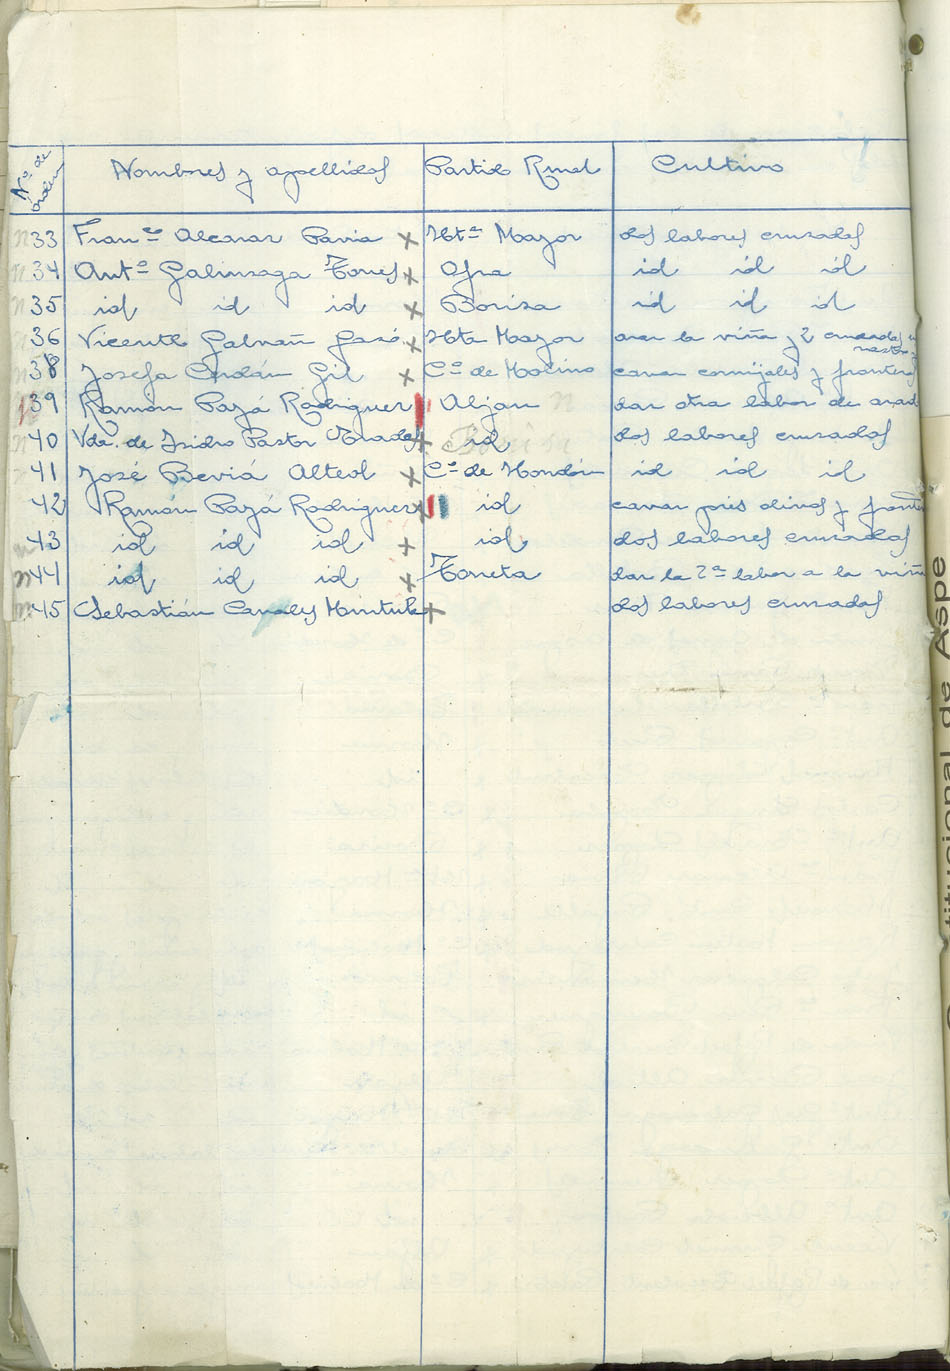 Nº de orden Nombres y apellidos Partido Rural Cultivo
n 33 Franco Alcaraz Pavia x Hta Mayor dos labores cruzadas
n 34 Anto Galinsaga Torres x Ofra id id id
n 35 id id id x Boriza id id id
n 36 Vicente Galvañ Gazó x Hta Mayor arar la viña y 2 cruzadas en
n 38 Josefa Cerdán Gil x Co de Molino cavar cornijales y fronteras
n 39 Ramón Pazá Rodriguez Aljau n dar otra labor de arado
n 40 Vda. de Isidro Pastor Pradas x id dos labores cruzadas
41 José Beviá Alteol x Co de Hondón id id id
42 Ramón Pazá Rodriguez x id cavar piés olivos y
43 id id id x id dos labores cruzadas
n 44 id id id x Toneta dar la 2ª labor a la viña
n 45 Sebastián Canals x dos labores cruzadas
de Aspe